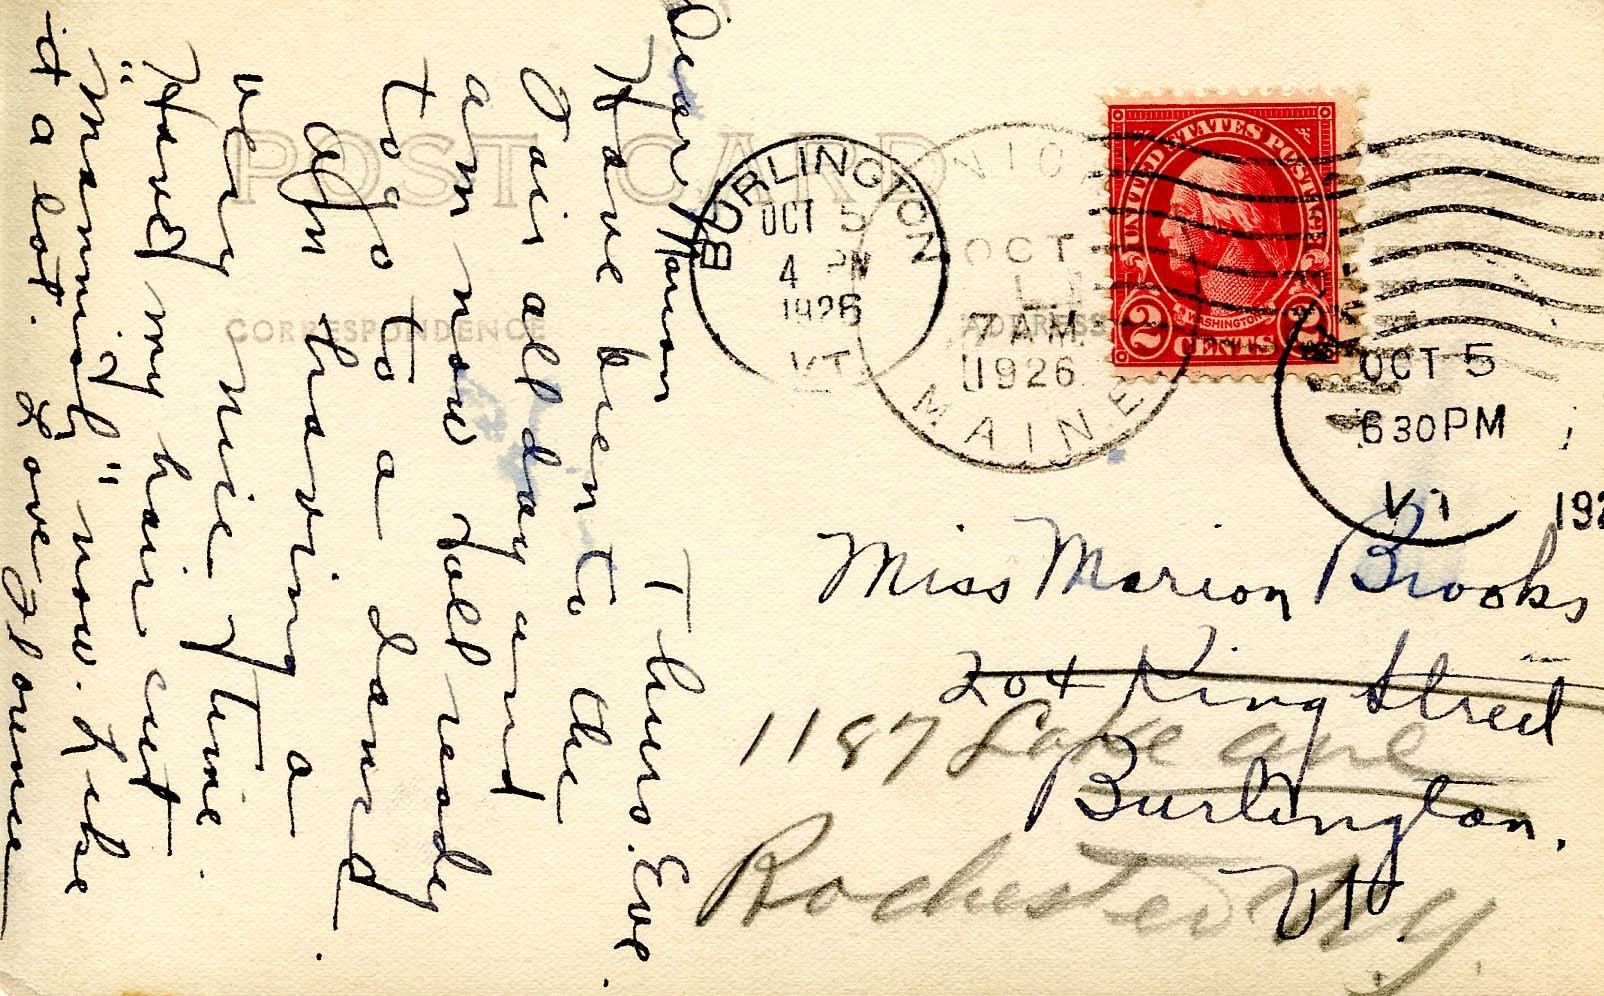 POST CARD
CORRESPONDENCE
ADDRESS
Thurs. Eve.
Dear Marion
Have been to the
Fair all day and
am now all ready
to go to a dance
Am having a
very nice time.
Have my hair cut
"Mannish" now. Like
it a lot. Love Florence
BURLINGTON
OCT 5
4 PM
1926
VT.
UNION
OCT
7 A.M.
1926
MAINE
UNITED STATES POSTAGE
WASHINGTON
2 CENTS 2
OCT 5
6 30 PM
VT
192
Miss Marion Brooks
204 King Street
Burlington.
Vt.
1187 Lake ave
Rochester N.Y.